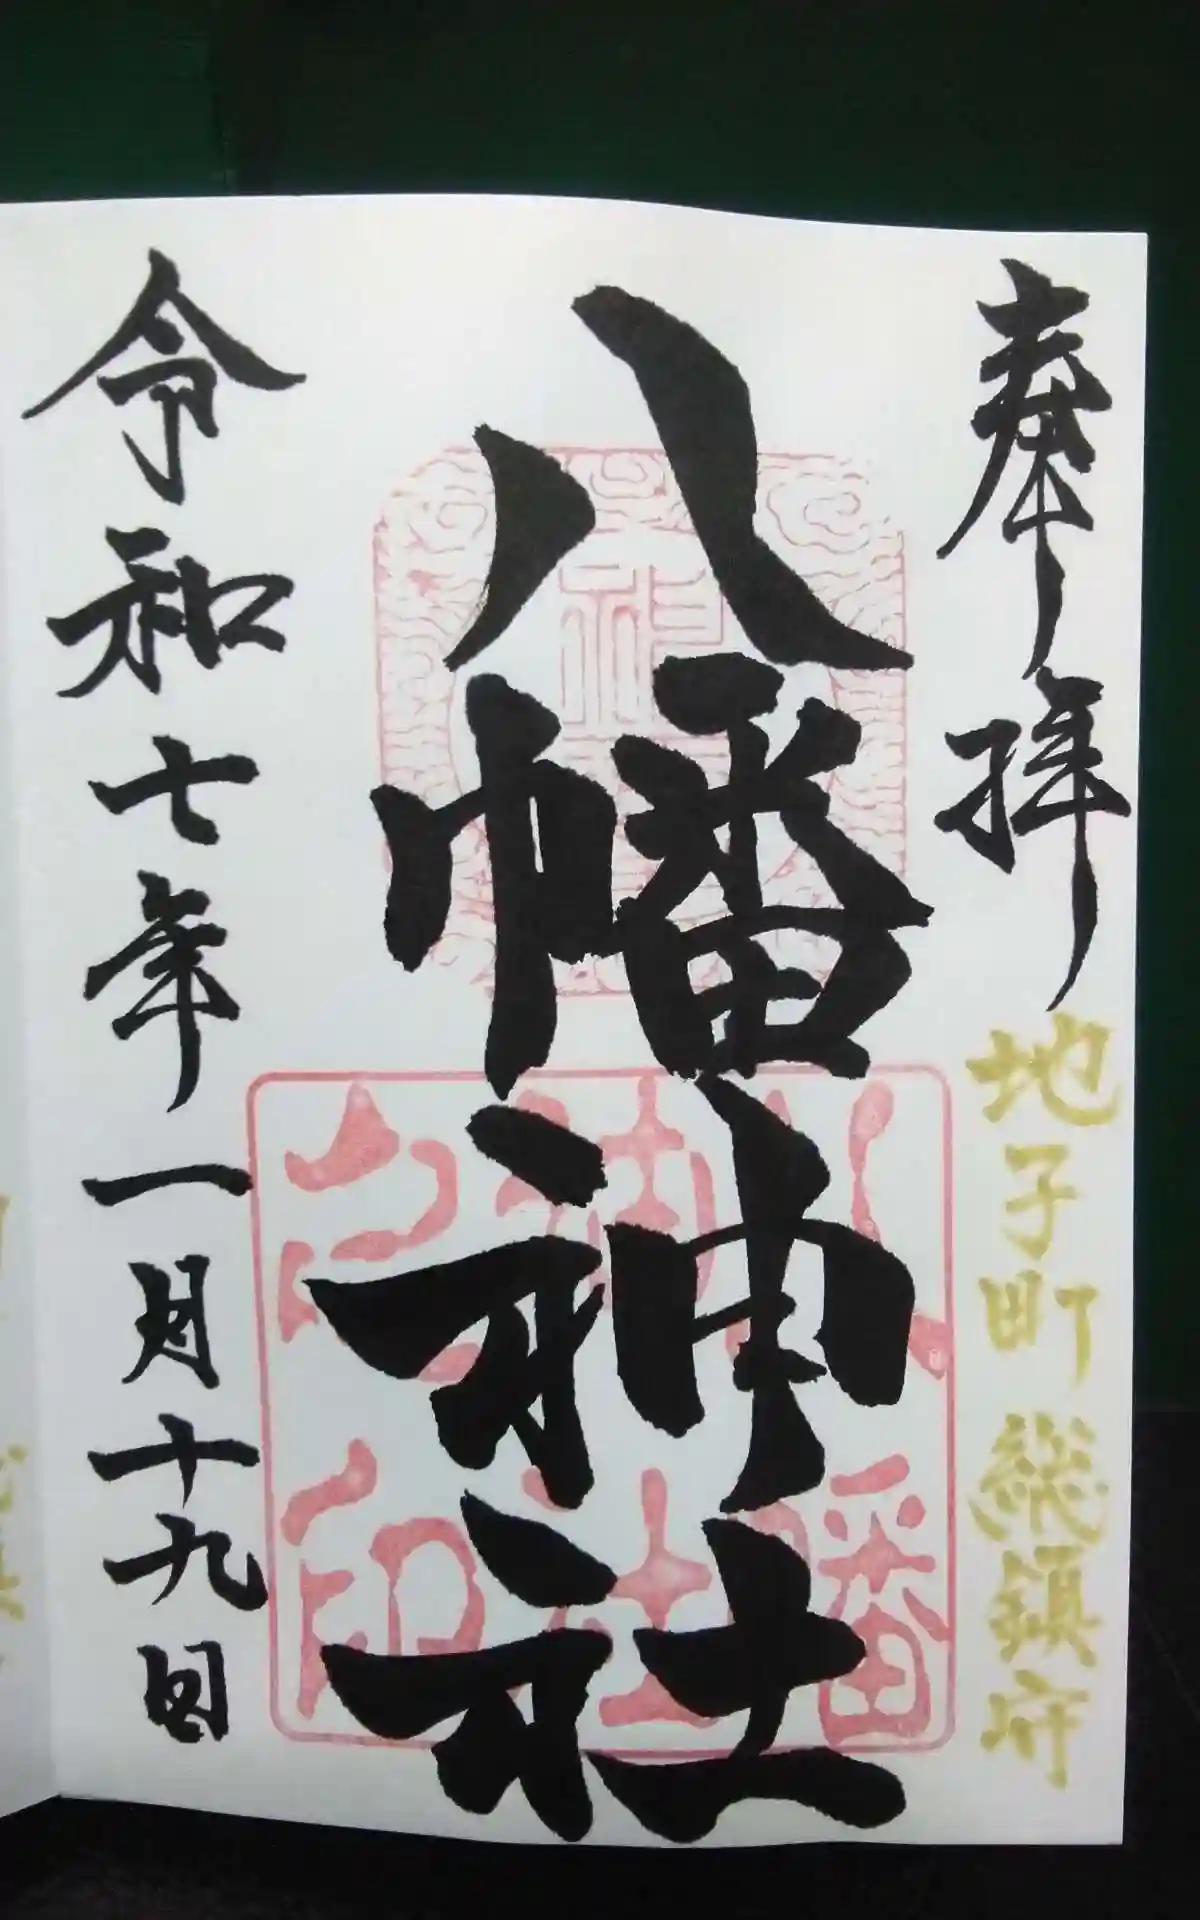 奉拝
地子町総鎮府
八幡神社
八幡神社之印
令和七年一月十九日